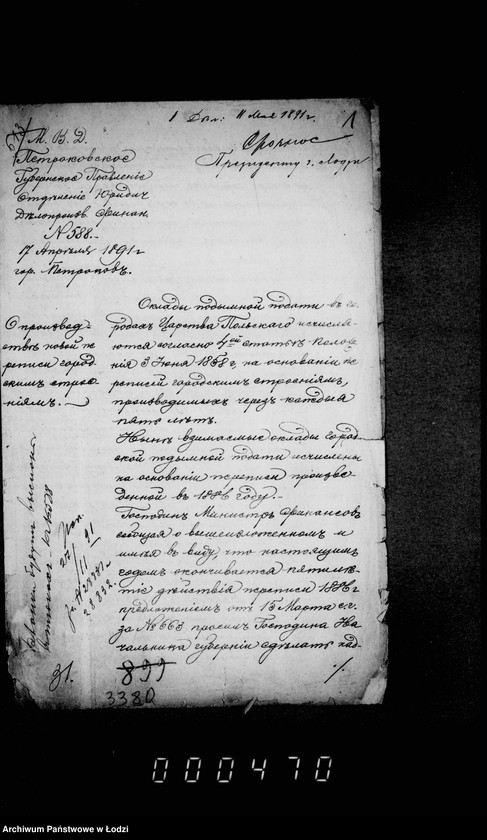 1 Дол: 11 Мая 1891 г.
1
М. В. Д.
Петроковское
Губернское Правление
Отделение Юридич
Делопроизв. Финан.
№ 588.
17 Апреля 1891 г
гор. Петроков.
Срочное
Президенту г. Лодзи
О производ-
стве новой пе
реписи город-
ским строе-
ниям.
Оклады подымной подати в го-
родах Царства Польского исчисля-
ются согласно 4ой статьи Положе
ния 3 Июня 1868 г, на основании пе
реписей городским строениям,
производимых через каждыя
пять лет.
Ныне взимаемые оклады город
ской подымной подати исчислены
на основании переписи произве-
денной в 1886 году.
Господин Министр Финансов
сообщая о вышеизложенном и
имея в виду, что настоящим
годом оканчивается пятиле-
тие действия переписи 1886 г
предложением от 15 Марта с.г.
за № 663 просит Господина На
чальника губернии сделать над-
./.
31.
899
3380
000470
Archiwum Państwowe w Łodzi